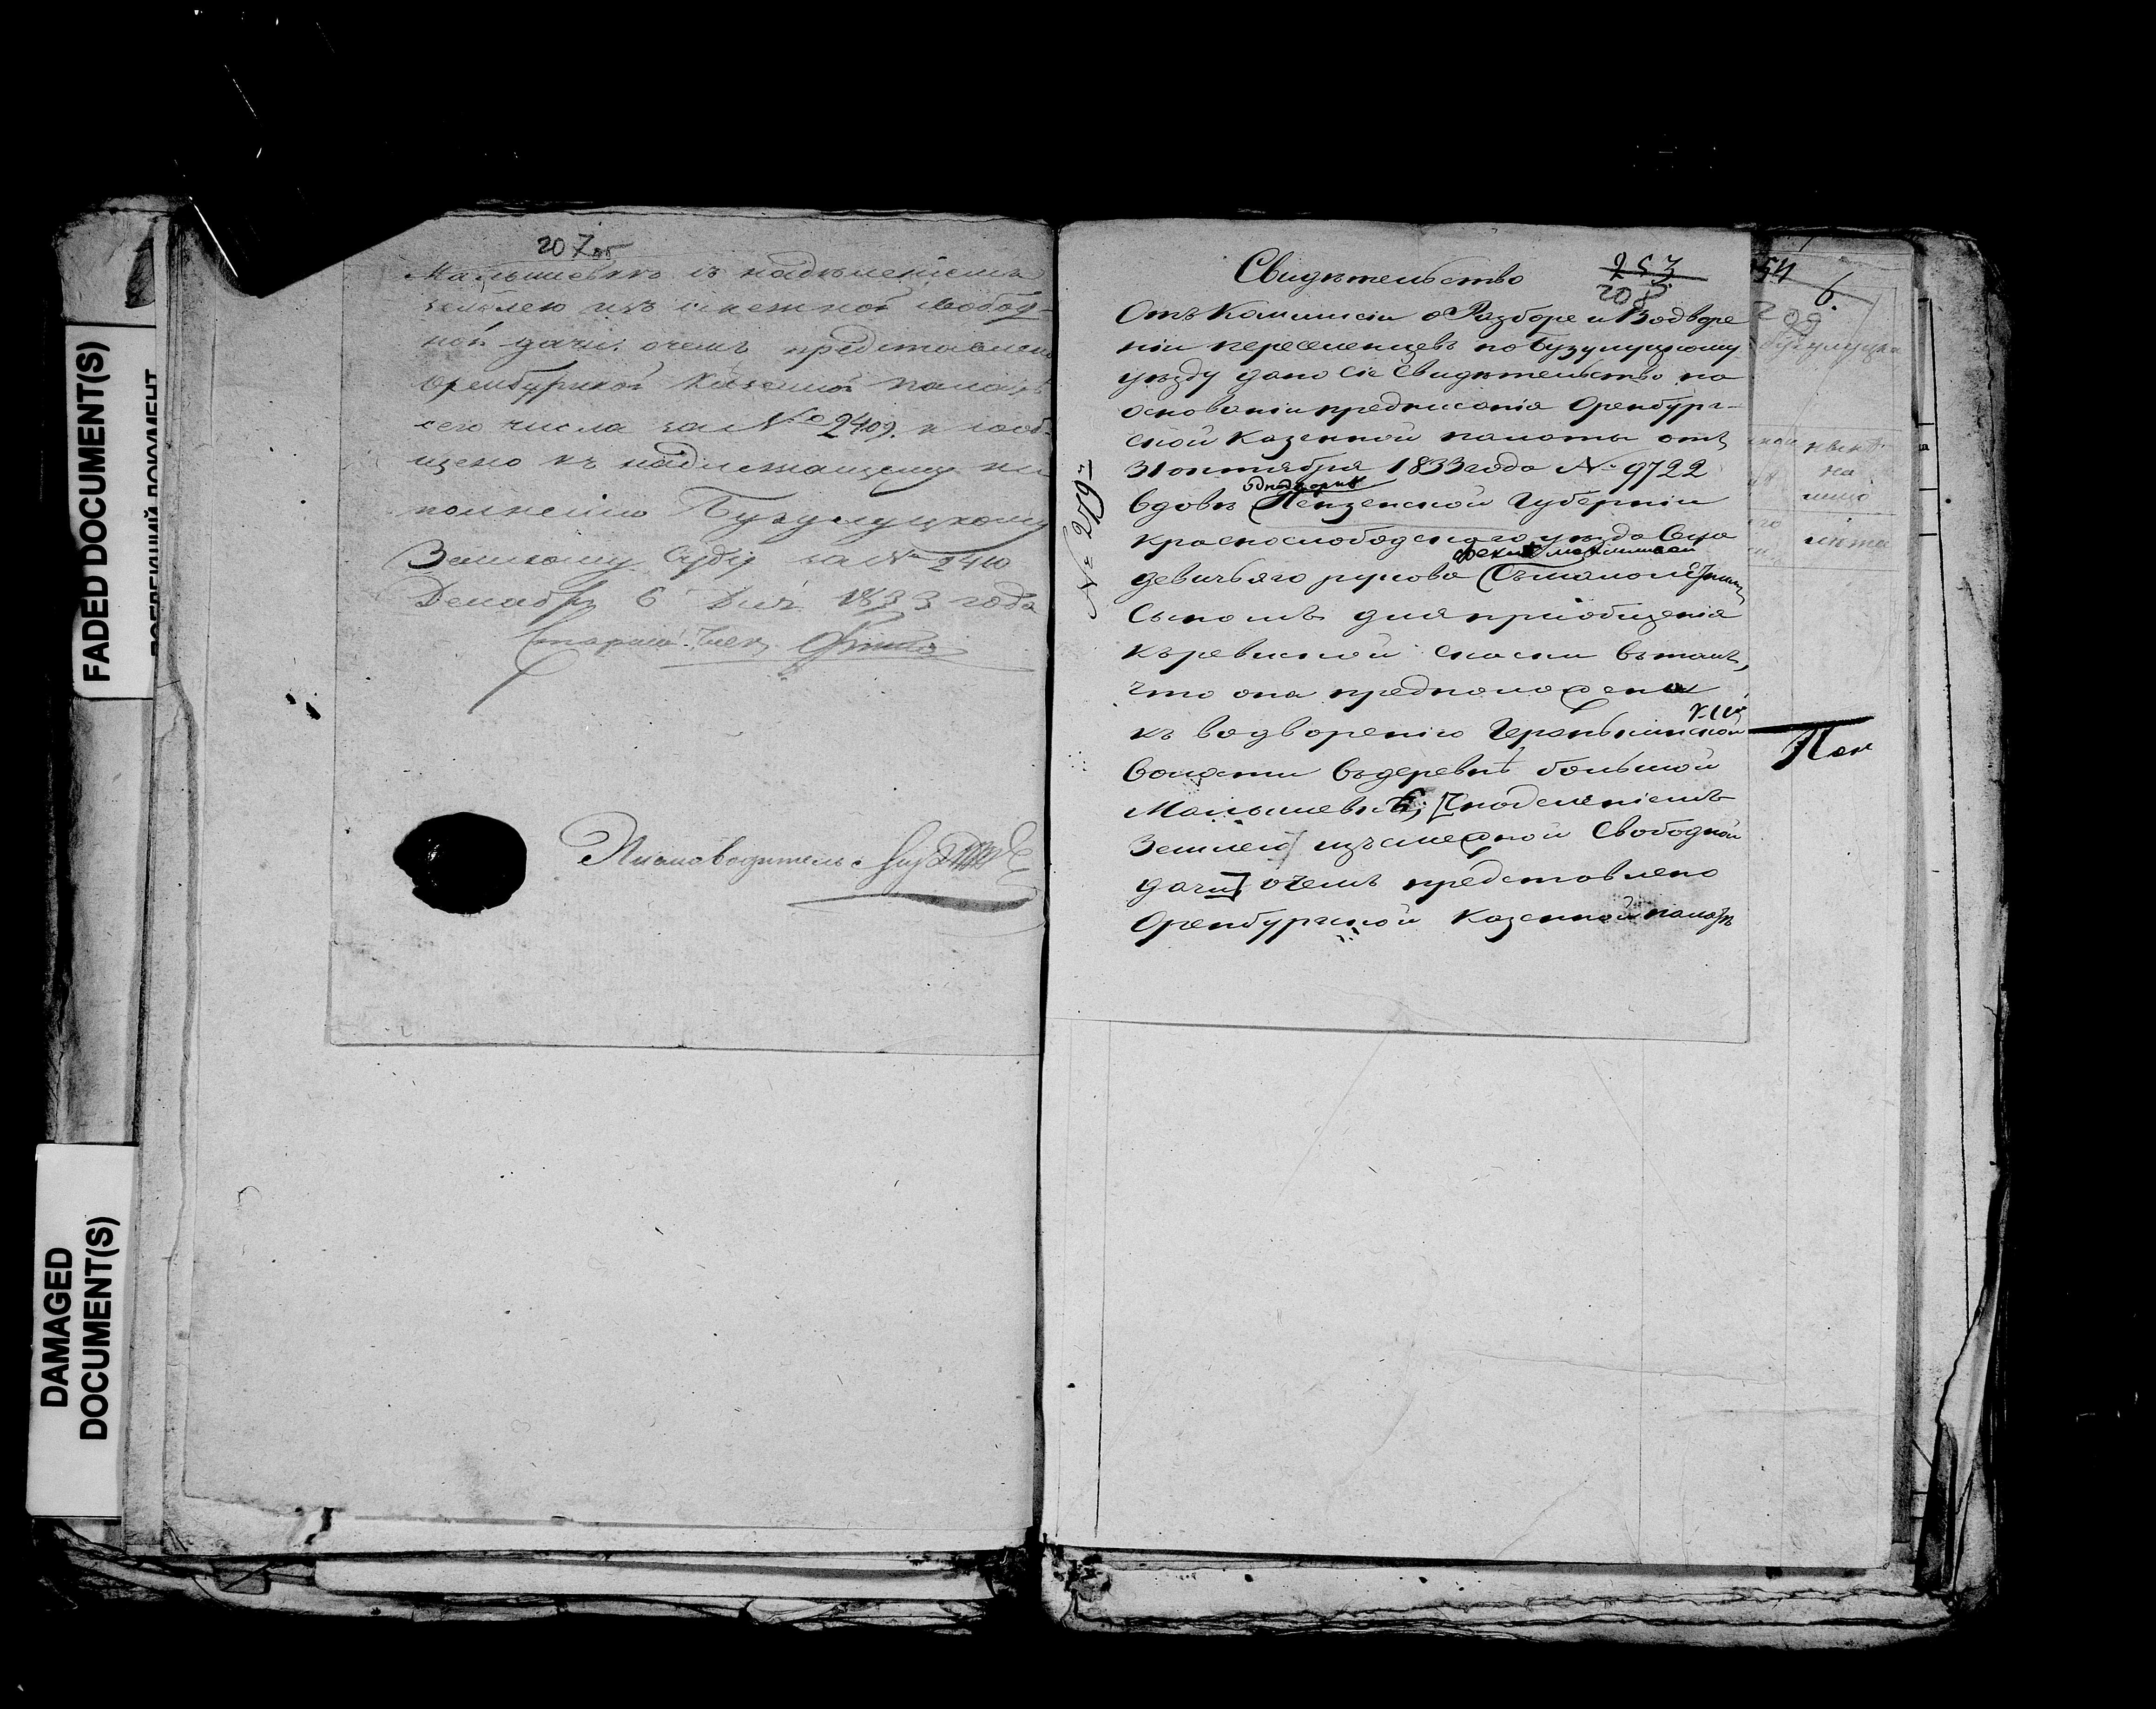 FADED DOCUMENT(S)
DAMAGED
DOCUMENT(S)
207об
Малышевкѣ съ надѣленіемъ
землею изъ смежной свобод-
ной дачи: очемъ представлено
Оренбургской Казенной палатѣ
сего числа за № 2409. и сооб-
щено къ надлежащему ис
полненію Бузулуцкому
Земскому Суду за № 2410
Декабря 6 Дня 1833 года
Старшій Член
Письмоводитель
Свидѣтельство
253
208
Отъ Комиссіи о Разборе и Водворе
ніи переселенцевъ по бузулуцкому
уѣзду дано сіе Свидѣтельство на
основаніи предписанія Оренбург-
ской казенной палаты отъ
31 октября 1833 года № 9722
№ 279
однодворкѣ
вдовѣ Пензенской Губерніи
Краснослободского уѣзда Села
девичьяго рукова
Сыномъ для пріобщенія
къ ревиской скаски въ томъ,
что она предположена
къ водворенію
волости въ деревнѣ большой
Малышевкѣ, [с наделеніемъ
Землею изъ смежной Свободной
дачи] очемъ представлено
Оренбургской Казенной палатѣ
54
6.
209
на
лицо
лѣта
Пок